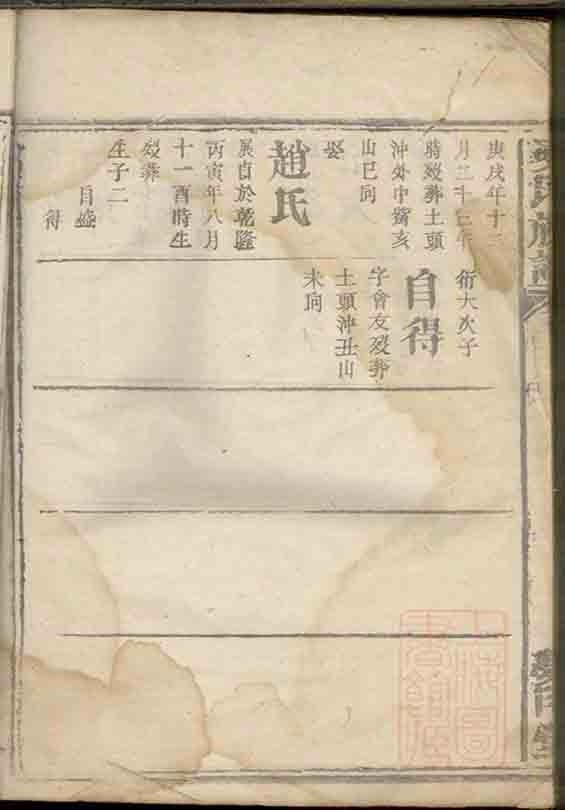 庚戌年十二
月二十七日午
時歿葬土頭
沖外中嘴亥
山巳向
娶
趙氏
展自於乾隆
丙寅年八月
十一酉時生
歿葬
生子二
自盛
得
衍大次子
自得
字會友歿葬
土頭沖丑山
未向
氏族譜
上海圖書館藏